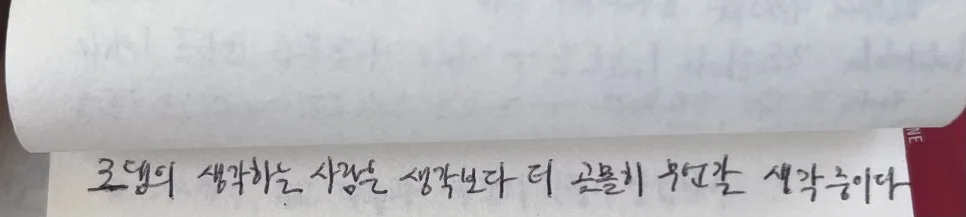 로댕의 생각하는 사람은 생각보다 더 곰곰히 무언갈 생각 중이다
NE